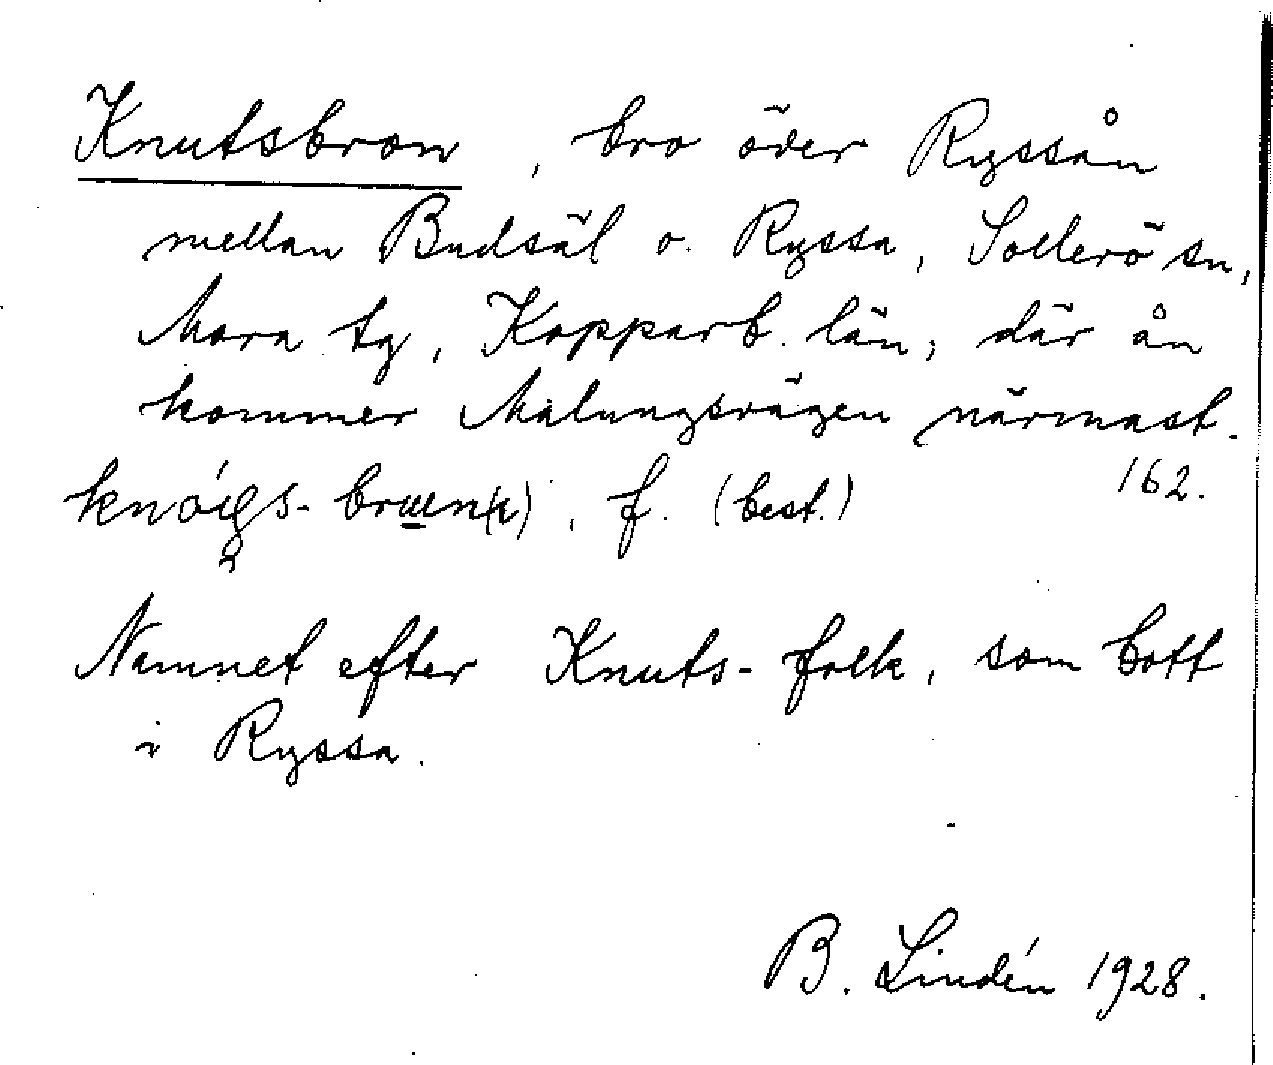 Knutsbron, bro över Ryssån
mellan Budsäl o. Ryssa, Sollerö sn,
Mora tg, Kopparb. län, där ån
kommer Malungsvägen närmast.
162.
f. (best.)
Namnet efter Knuts-folk, som bott
i Ryssa.
B. Lindén 1928.